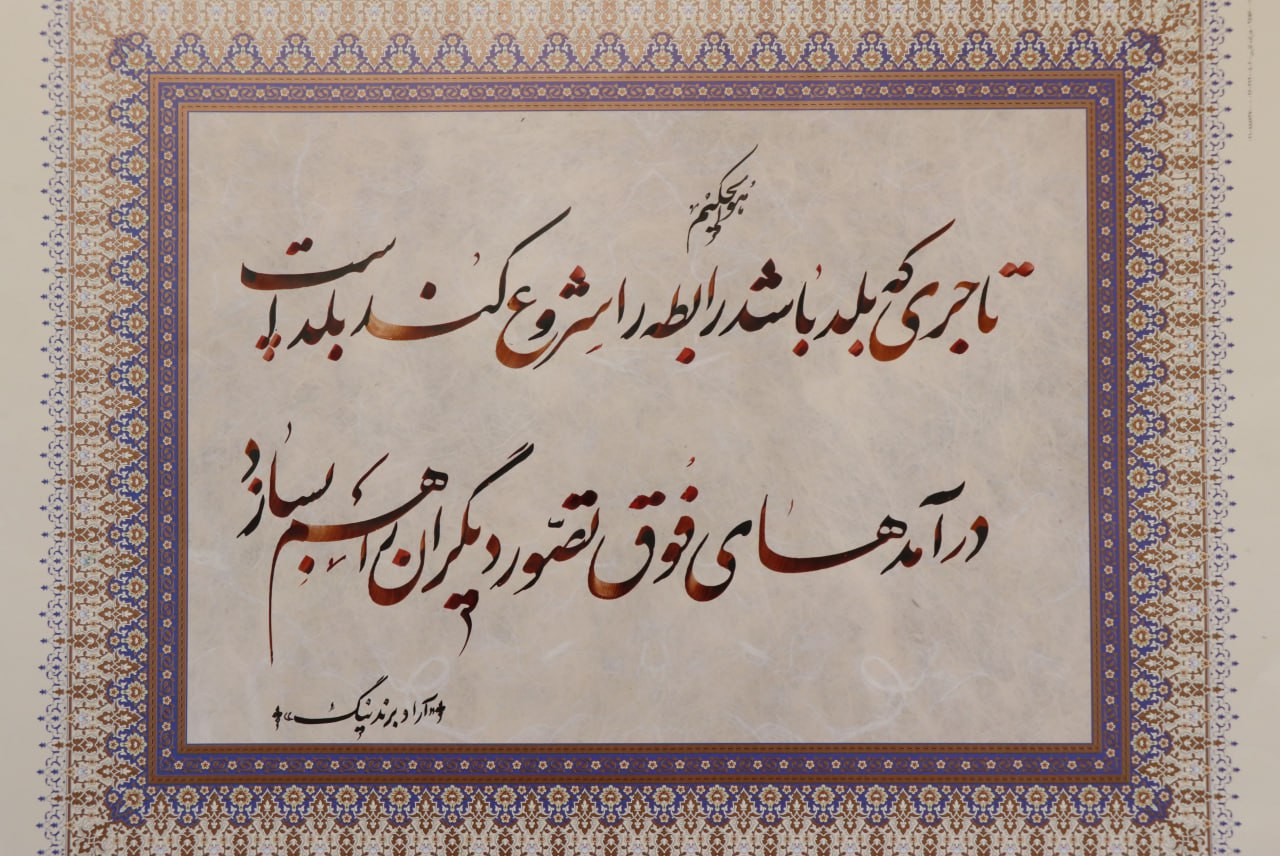 هو الحکیم
تاجری که بلد باشد رابطه را شروع کند بلد است
درآمدهای فوق تصور دیگران را هم بسازد
«آراد برندینگ»